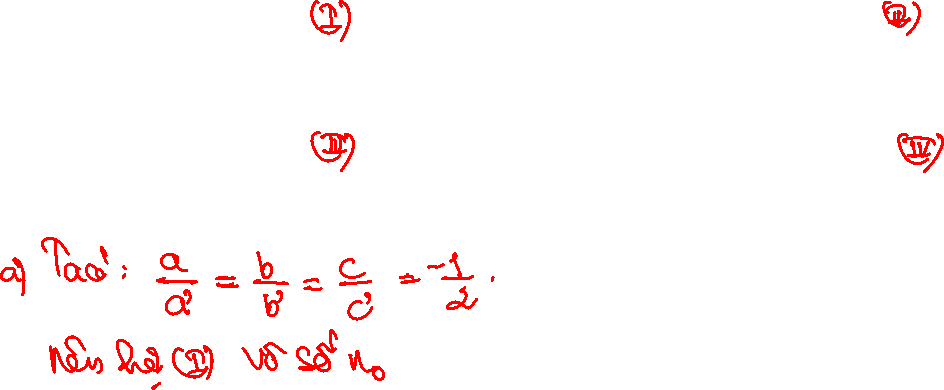 (I) (II)
(III) (IV)
a) Ta có: a/a' = b/b' = c/c' = -1/2.
Nên hệ (I) vô số n₀